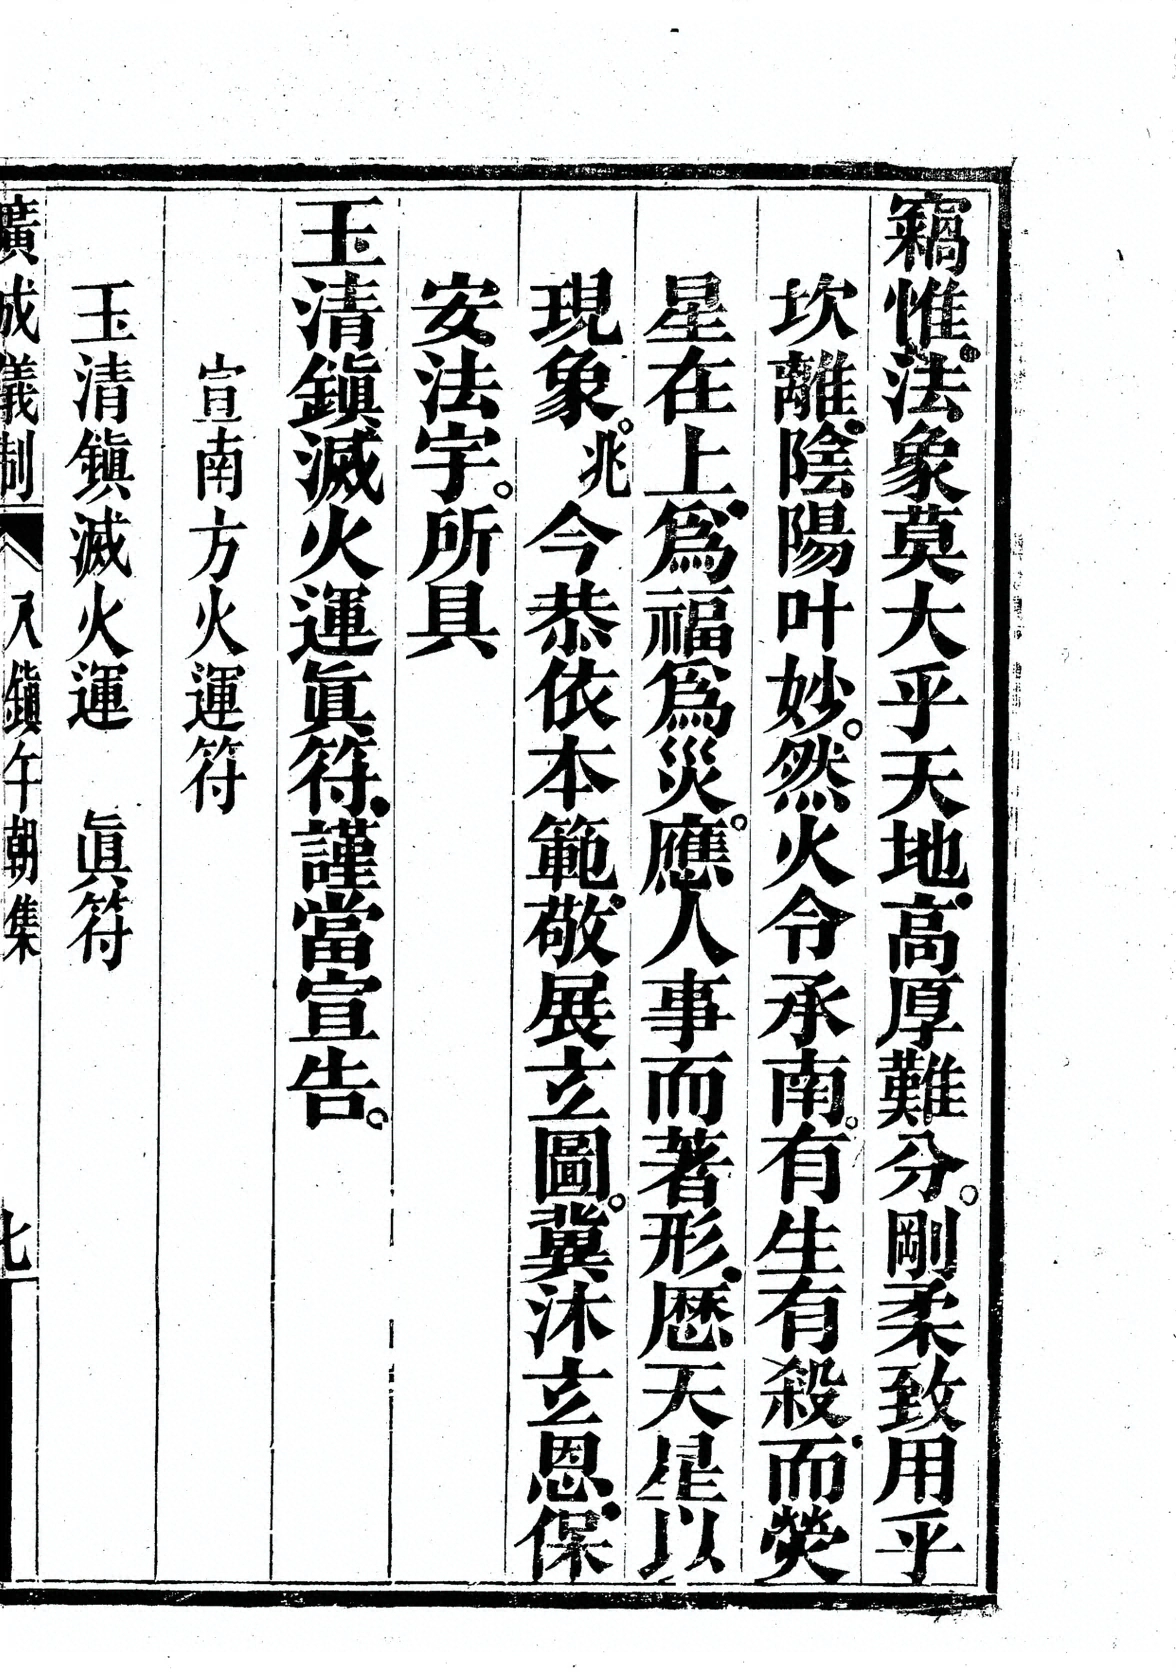 竊惟法象莫大乎天地高厚難分。剛柔致用乎
坎離陰陽叶妙。然火令承南。有生有殺而熒
星在上爲福爲災。應人事而著形歷天星以
現象。兆今恭依本範敬展立圖。冀沐立恩保
安法宇。所具
玉清鎮滅火運眞符謹當宣告。
宣南方火運符
玉清鎮滅火運　眞符
廣成儀制　八鎮午朝集　七